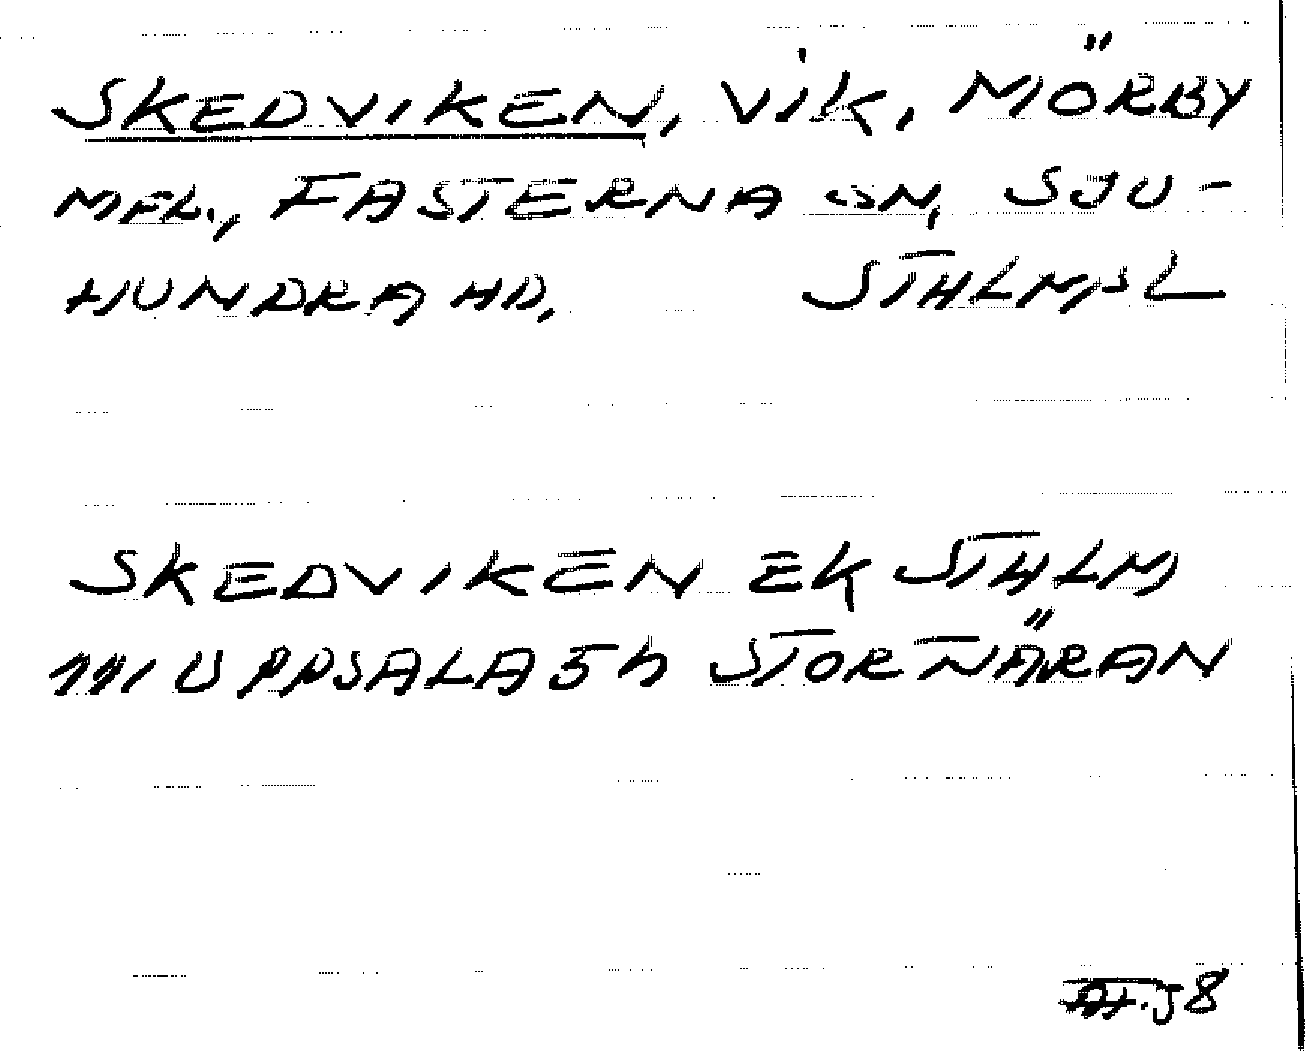 SKEDVIKEN, VIK, MÖRBY
MFL., FASTERNA SN, SJU-
HUNDRA HD, STHLMS L
SKEDVIKEN EK STHLM
111 UPPSALA 5h STOR NÄRAN